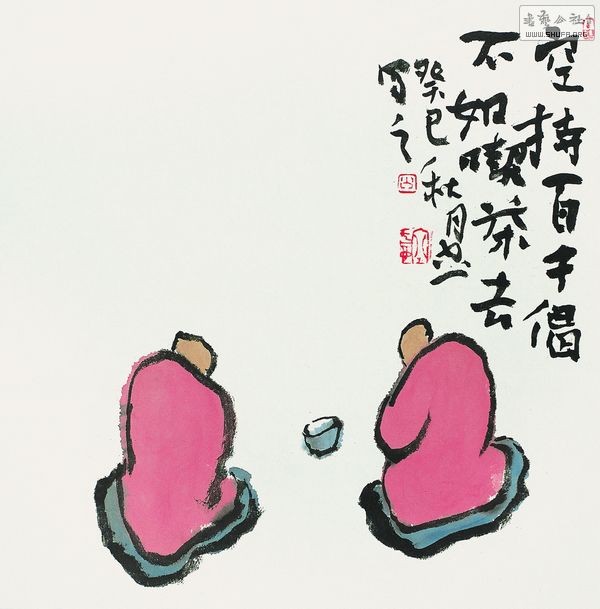 空持百千偈
不如喫茶去
癸巳秋月
写之
书艺公社
WWW.SHUFA.ORG